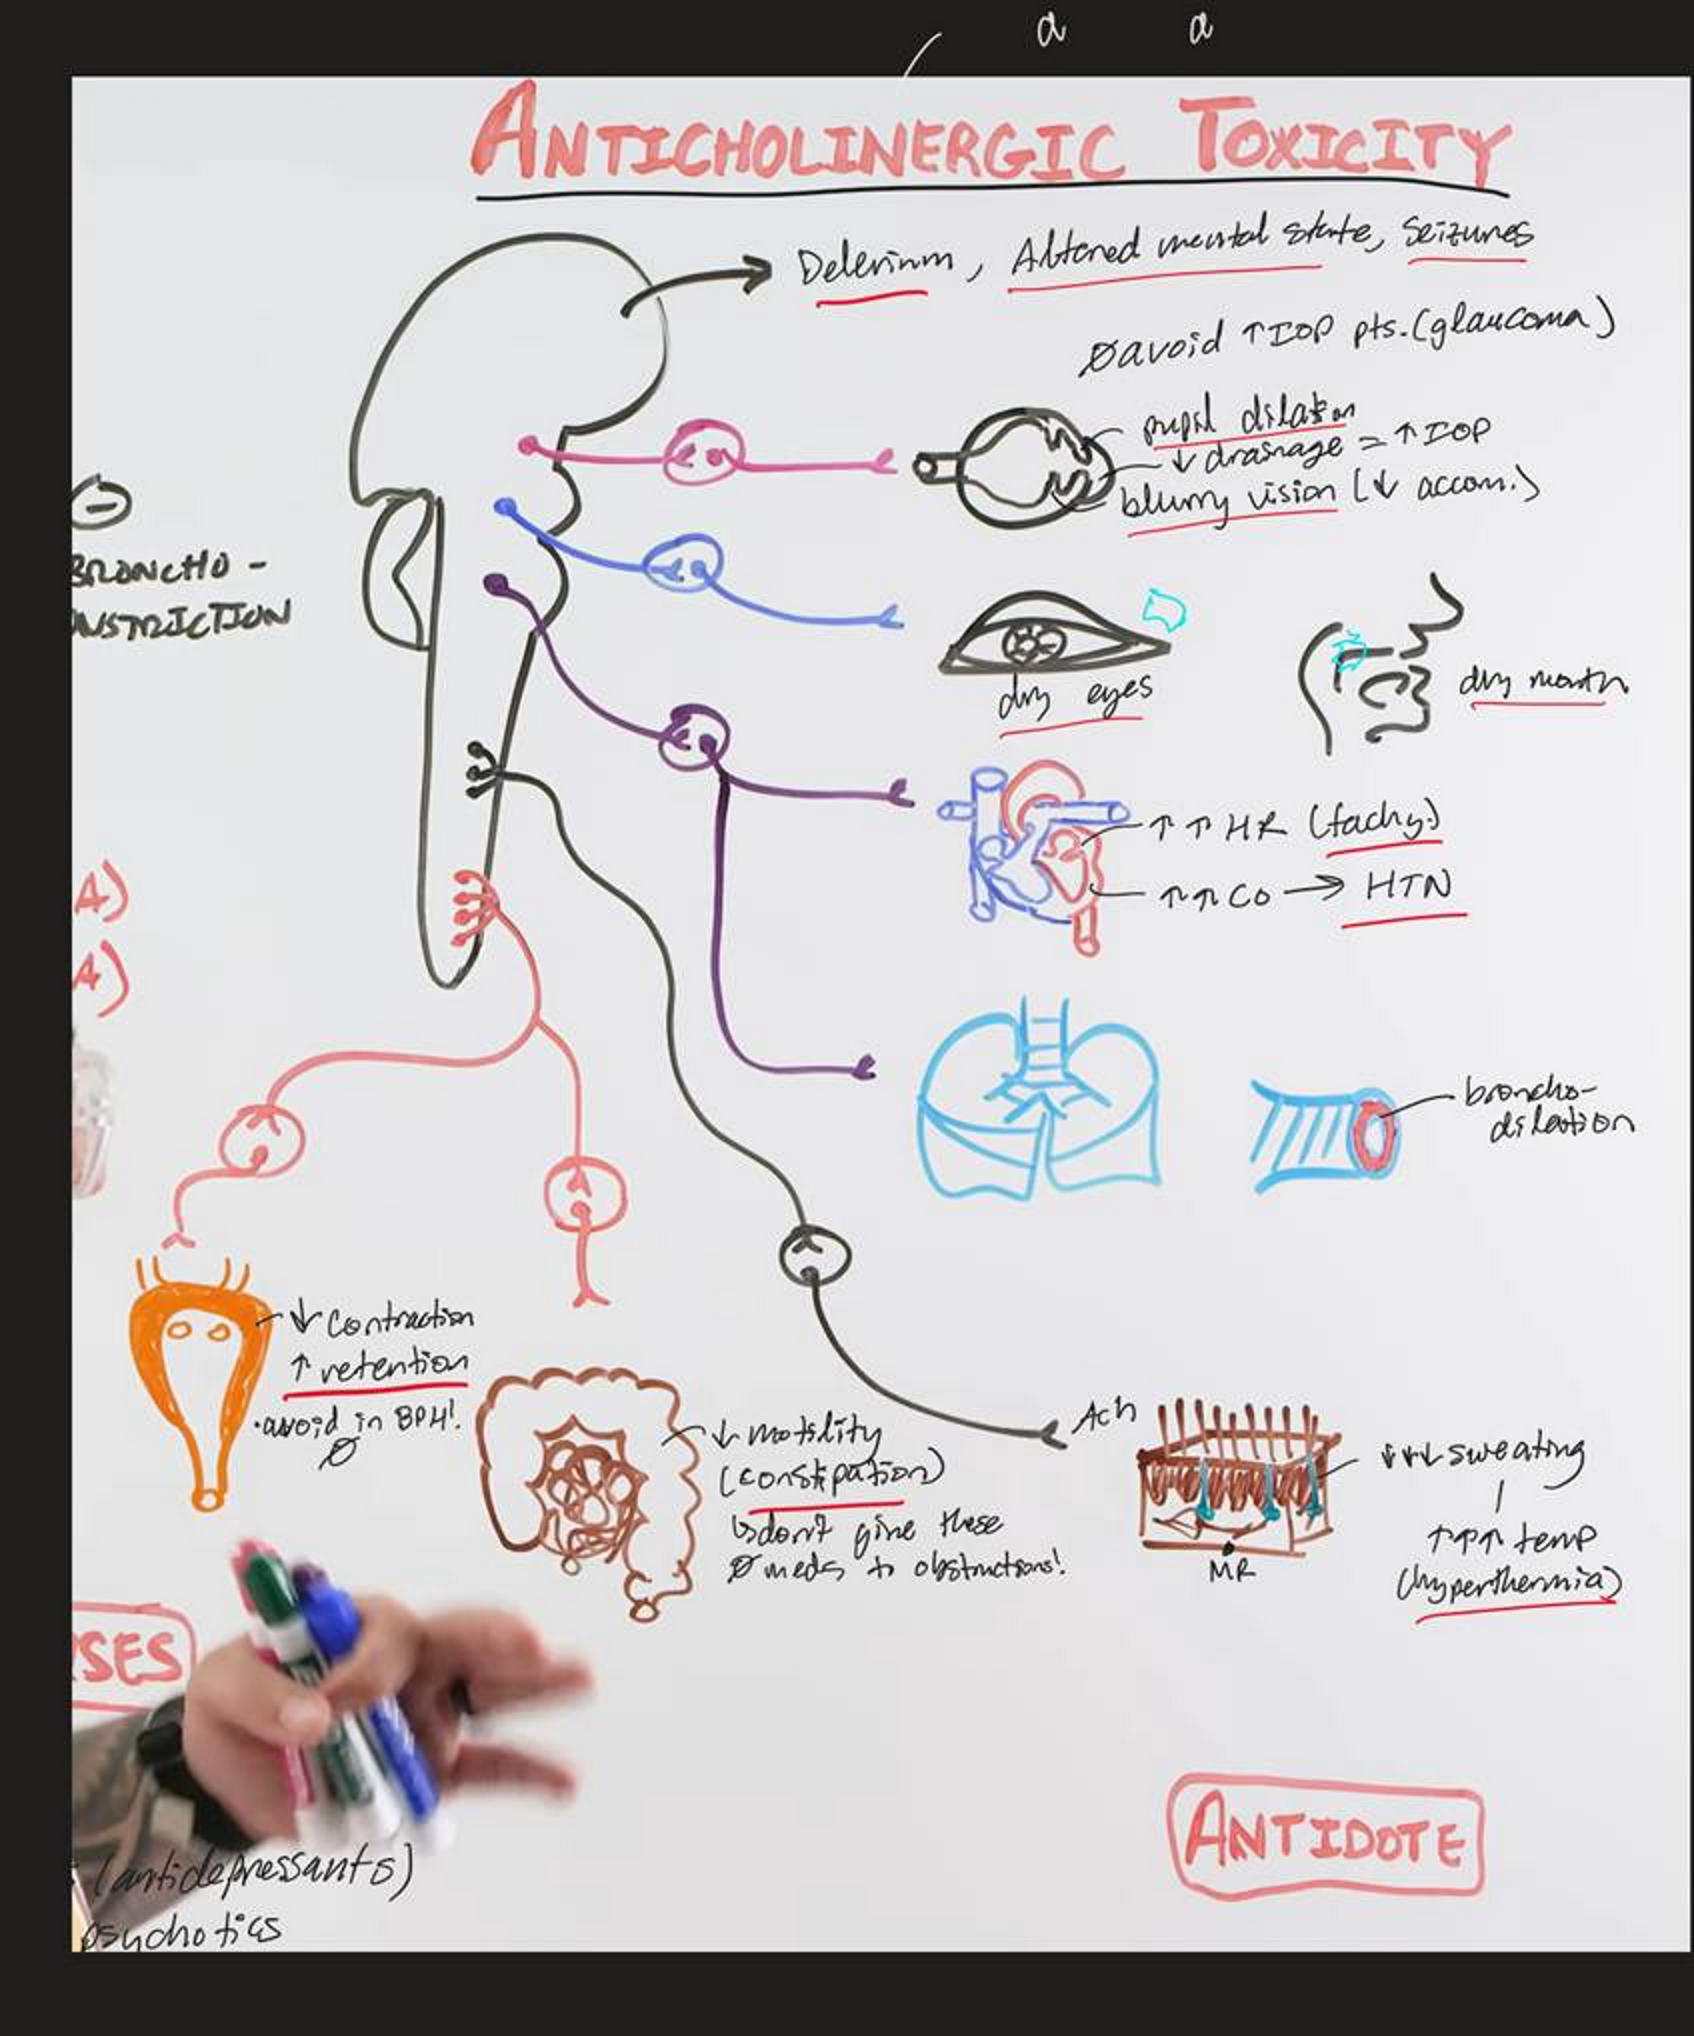 a a
ANTICHOLINERGIC TOXICITY
Delerium, Altered mental state, Seizures
avoid ↑IOP pts. (glaucoma)
pupil dilation
↓ drainage = ↑IOP
blurry vision (↓ accom.)
⊖
BRONCHO-
NSTRICTION
dry eyes
dry mouth
↑↑HR (tachy.)
↑↑CO → HTN
A)
A)
broncho-
dilation
↓ Contraction
↑ retention
•avoid in BPH!
↓ motility
(constipation)
↳ don't give these
meds to obstructions!
Ach
MR
↓↓↓sweating
↑↑↑ temp
(hyperthermia)
SES
ANTIDOTE
(antidepressants)
psychotics